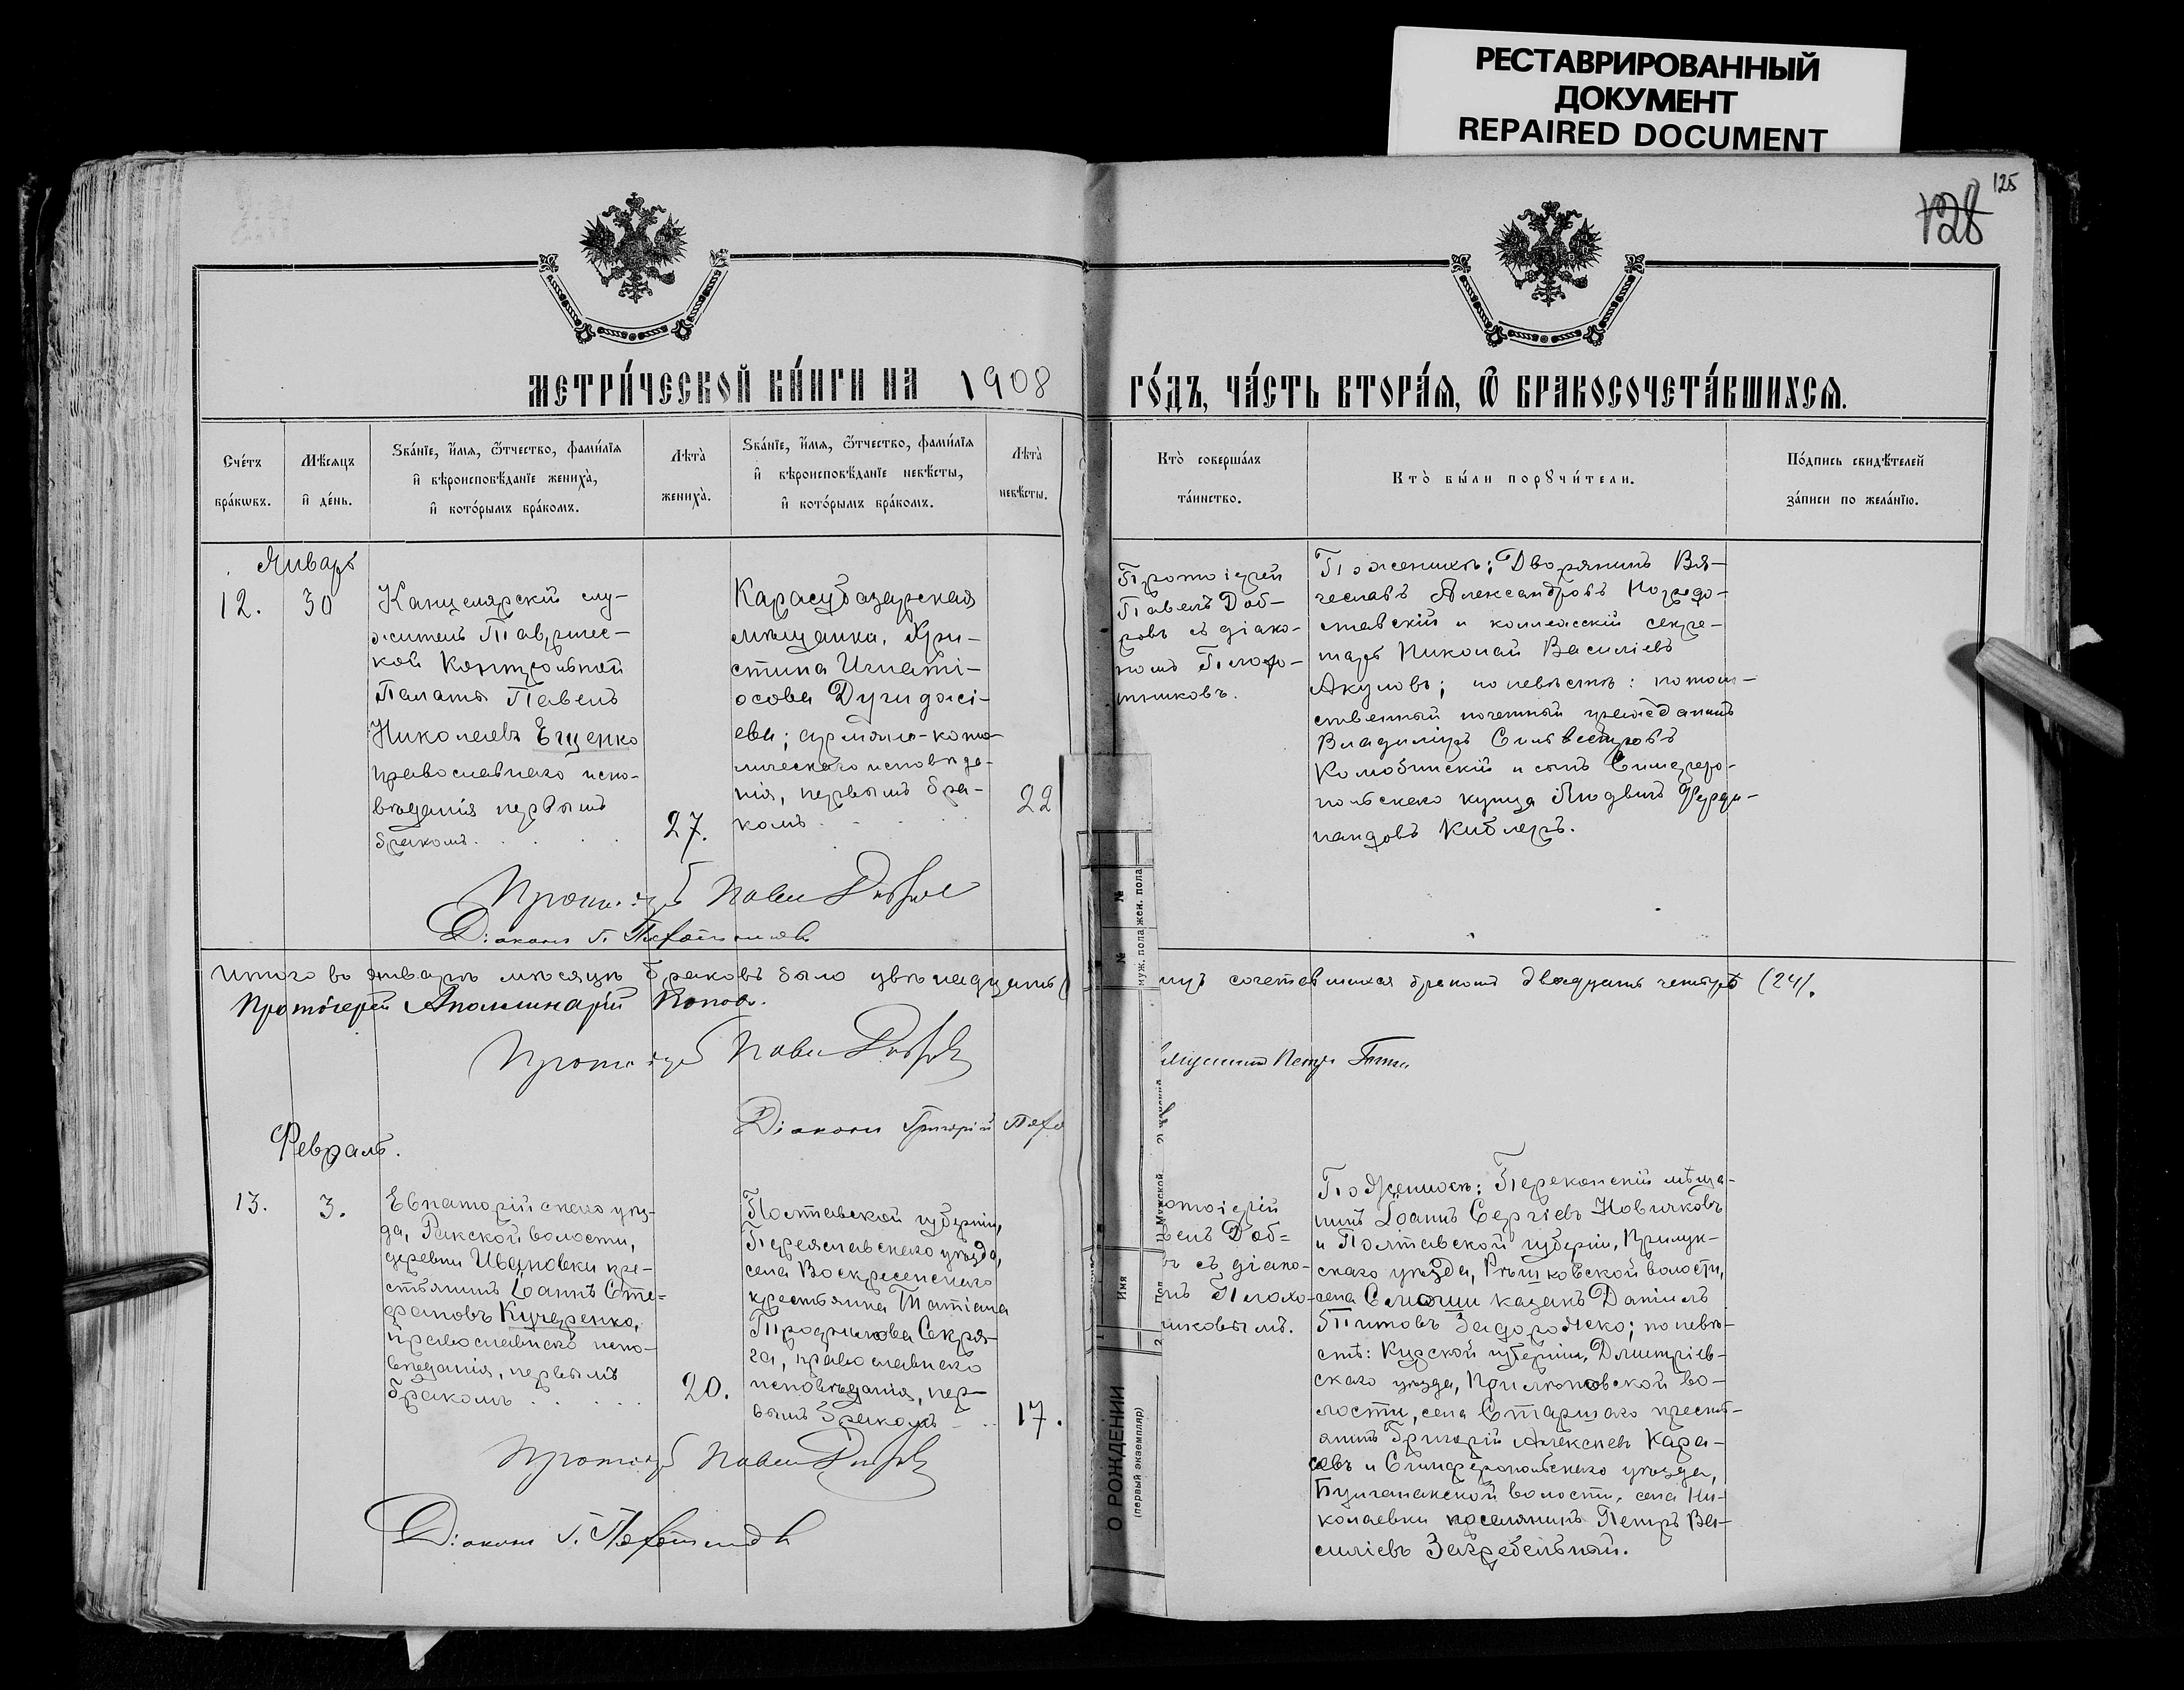 РЕСТАВРИРОВАННЫЙ
ДОКУМЕНТ
REPAIRED DOCUMENT
125
128
МЕТРИ́ЧЕСКОЙ КНИ́ГИ НА 1908
ГО́ДЪ, ЧА́СТЬ ВТОРА́Я, Ѡ БРАКОСОЧЕТА́ВШИХСЯ.
Сче́тъ
бра́кѡвъ.
Мѣ́сяцъ
и҆ де́нь.
Ѕва́нїе, и҆́мя, ѻ҆́тчество, фами́лїя
и҆ вѣроисповѣ́данїе жениха̀,
и҆ кото́рымъ бра́комъ.
Лѣта̀
жениха̀.
Ѕва́нїе, и҆́мя, ѻ҆́тчество, фами́лїя
и҆ вѣроисповѣ́данїе невѣ́сты,
и҆ кото́рымъ бра́комъ.
Лѣта̀
невѣ́сты.
Кто̀ соверша́лъ
та́инство.
Кто̀ бы́ли порꙋчи́тели.
По́дпись свидѣ́телей
за́писи по жела́нїю.
Январь
12.
30
Канцелярскій слу-
житель Тавричес-
кой Контрольной
Палаты Павелъ
Николаевъ Ещенко
православнаго испо-
вѣданія первымъ
бракомъ. . . .
27.
Карасубазарская
мѣщанка, Хри-
стина Игнаті-
осова Дугиджі-
ева; армяно-като-
лическаго исповѣда-
нія, первымъ бра-
комъ
22
Протоіерей
Павелъ Доб-
ровъ съ діако-
номъ Плохо-
тниковъ.
По женихѣ: Дворянинъ Вя-
чеславъ Александровъ
и коллежскій секре-
тарь Николай Василіевъ
Акуловъ; по невѣстѣ: потом-
ственный почетный гражданинъ
Владиміръ Сильвестровъ
Комобинскій и сынъ Симферо-
польскаго купца Людвигъ Ферди-
нандовъ Киблеръ.
Протоіерей Павелъ Добровъ
Діаконъ Г. Плохотниковъ
Итого въ январѣ мѣсяцѣ браковъ было двѣнадцать
сочетавшихся бракомъ двадцать четыре (24).
Протоіерей Аполлинарій Попов.
Протоіерей Павелъ Добровъ
Петръ
Діаконъ Григорій Плохо
Февраль.
13.
3.
Евпаторійскаго уѣз-
да, Ракской волости,
деревни Ивановки кре-
стьянинъ Іоаннъ Сте-
фановъ Кучеренко,
православнаго испо-
вѣданія, первымъ
бракомъ . . . . .
20.
Полтавской губерніи,
Переяславскаго уѣзда,
села Воскресенскаго
крестьянка Татіана
Трофимова Секря-
га, православнаго
исповѣданія, пер-
вымъ бракомъ
17.
отоіерей
велъ Доб-
ъ съ діако-
мъ Плохо-
никовымъ.
По женихѣ: Перекопскій мѣща-
нинъ Іоаннъ Сергіевъ Новичковъ
и Полтавской губерніи, Прилук-
скаго уѣзда, Рѣшковской волости,
села Смоши казакъ Даніилъ
Титовъ Задорожко; по невѣ-
стѣ: Курской губерніи, Дмитріев-
скаго уѣзда, Прилѣповской во-
лости, села Старшаго кресть-
янинъ Григорій Алексѣевъ Кара-
севъ и Симферопольскаго уѣзда,
Булганакской волости, села Ни-
колаевки поселянинъ Петръ Ва-
силіевъ Загребельный.
Протоіерей Павелъ Добровъ
Діаконъ Г. Плохотниковъ
№
муж. пола
№
жен. пола
1) Мужской
2) женский
Имя
Пол
1
2
О РОЖДЕНИИ
(первый экземпляр)